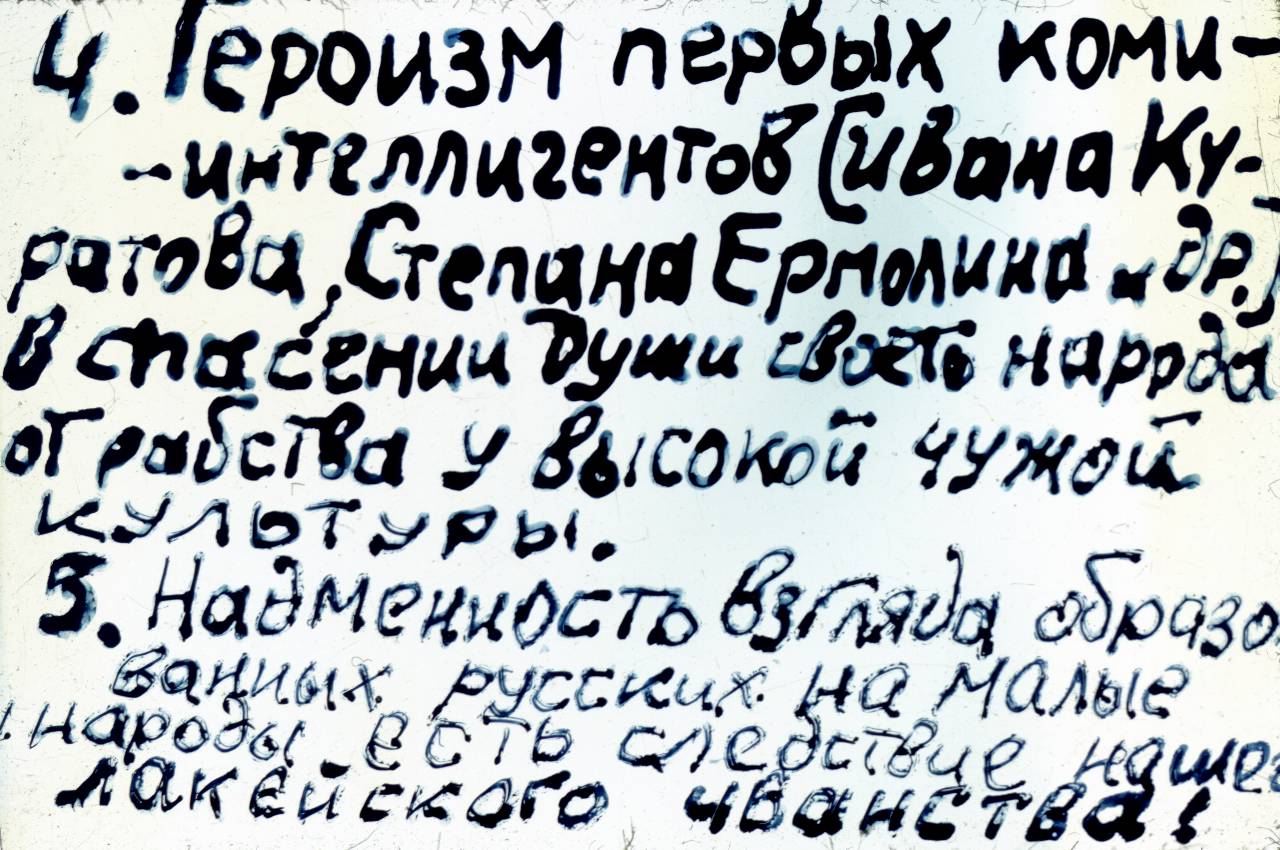 4. Героизм первых коми-
-интеллигентов (Ивана Ку-
ратова, Степана Ермолина и др.)
в спасении души своего народа
от рабства у высокой чужой
культуры.
5. Надменность взгляда образо
ванных русских на малые
народы есть следствие нашего
лакейского чванства!